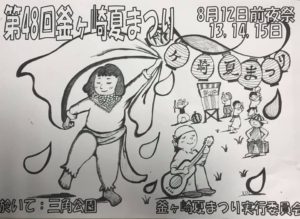 第48回釜ヶ崎夏まつり
8月12日前夜祭
13、14、15日
ケ崎夏まつり
於いて：三角公園
釜ヶ崎夏まつり実行委員会